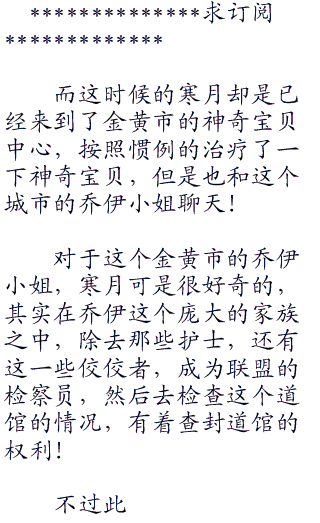 **************求订阅
*************
而这时候的寒月却是已
经来到了金黄市的神奇宝贝
中心，按照惯例的治疗了一
下神奇宝贝，但是也和这个
城市的乔伊小姐聊天！
对于这个金黄市的乔伊
小姐，寒月可是很好奇的，
其实在乔伊这个庞大的家族
之中，除去那些护士，还有
这一些佼佼者，成为联盟的
检察员，然后去检查这个道
馆的情况，有着查封道馆的
权利！
不过此